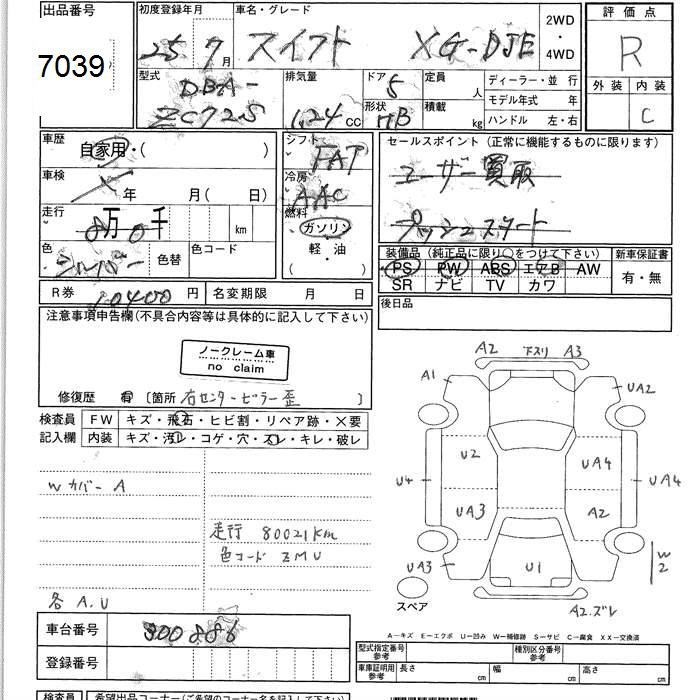 出品番号 初度登録年月 車名・グレード 2WD ・ 4WD 評価点
7039 25 年 7月 スイフト XG-DJE R
型式 排気量 ドア 定員 ディーラー・並行 外装 内装
DBA- 5 人 モデル年式 年
ZC72S 1.24 CC 形状 HB 積載 kg ハンドル 左・右 C
車歴 シフト セールスポイント (正常に機能するものに限ります)
自家用・( ) FAT ユーザー買取
車検 冷房
年 月( 日) AAC
走行 燃料 プッシュスタート
8万0千 km ガソリン
色 色替 色コード 軽・油 装備品 (純正品に限り○をつけて下さい) 新車保証書
シルバー ( ) PS PW ABS エアB AW 有・無
SR ナビ TV カワ
R券 10400円 名変期限 月 日 後日品
注意事項申告欄(不具合内容等は具体的に記入して下さい)
ノークレーム車
no claim
修復歴 有 〔箇所 右センターピラー歪 〕
検査員 FW キズ・飛石・ヒビ割・リペア跡・×要
記入欄 内装 キズ・汚レ・コゲ・穴・スレ・キレ・破レ
Wカバー A
走行 80021km
色コード ZMU
各 A.U
A2 下スリ A3
A1 UA2
U2 UA4
U4 UA4
UA3 A2
UA3 U1 W2
スペア A2.ズレ
A−キズ E−エクボ U−凹み W−補修跡 S−サビ C−腐食 XX−交換済
車台番号 300886
型式指定番号 参考 種別区分番号 参考
登録番号 車庫証明用 参考 長さ cm 幅 cm 高さ cm
検査員 希望出品コーナー(ご希望のコーナー名を記入下さい)